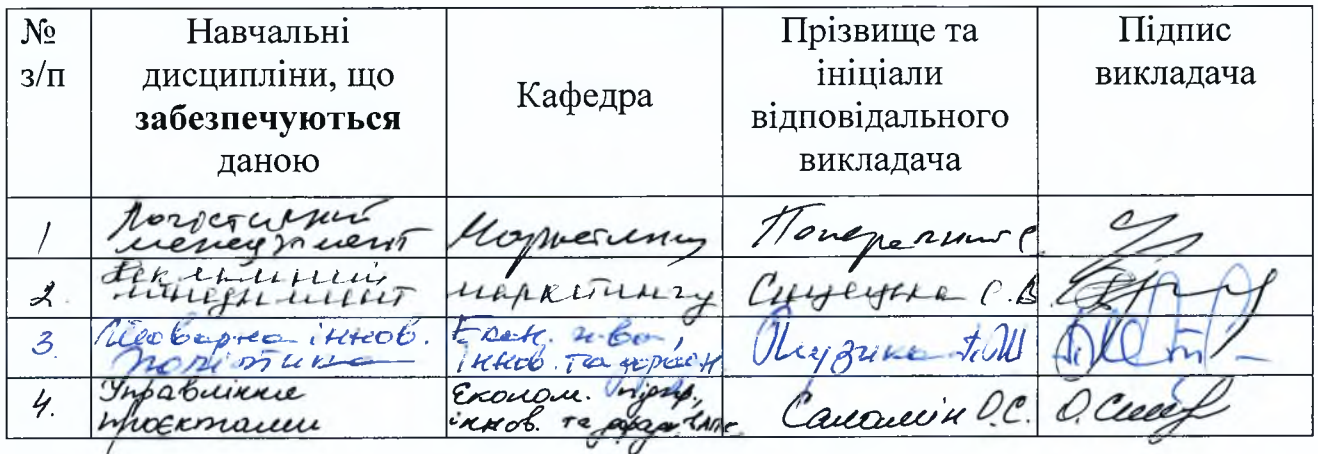 №
з/п
Навчальні
дисципліни, що
забезпечуються
даною
Кафедра
Прізвище та
ініціали
відповідального
викладача
Підпис
викладача
1
Логістичний
менеджмент
Маркетингу
2.
Рекламний
менеджмент
маркетингу
С.В.
3.
Товарна іннов.
політика
Екон.
іннов. та
4.
Управління
проєктами
Економ. підпр.,
іннов. та
Саламін О.С.